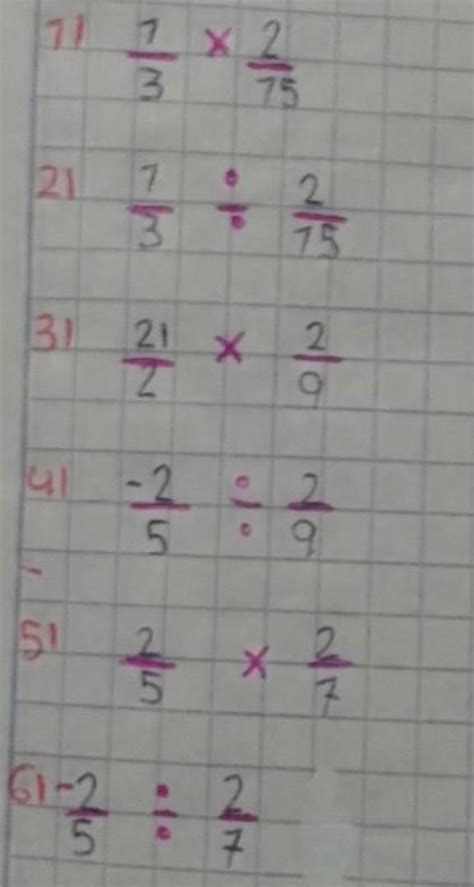 1) 1/3 × 2/15
2) 1/3 ÷ 2/15
3) 21/2 × 2/9
4) -2/5 ÷ 2/9
5) 2/5 × 2/7
6) -2/5 ÷ 2/7